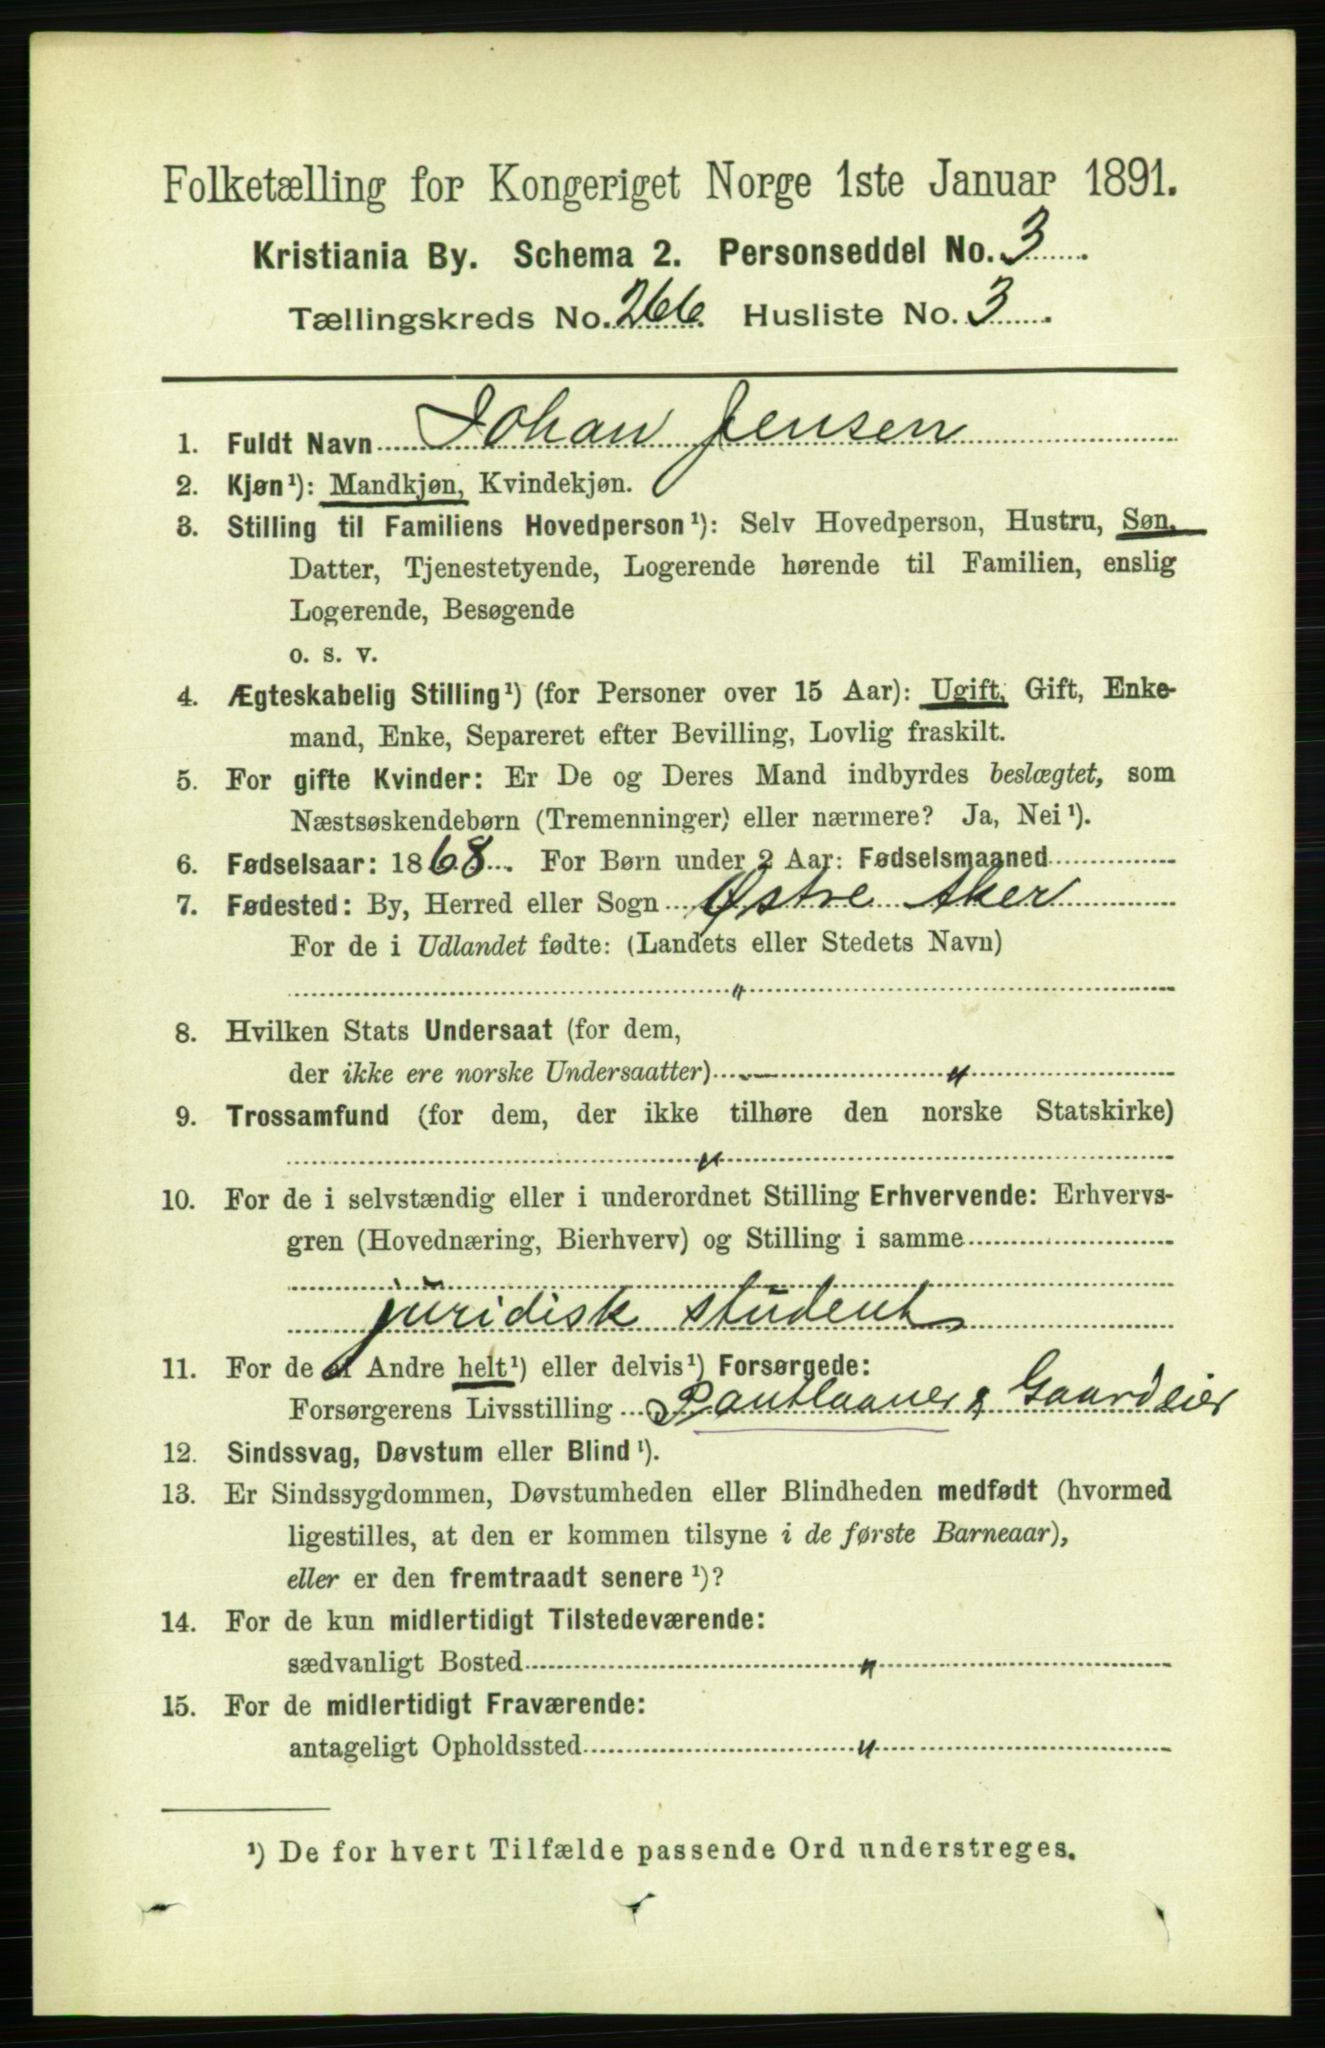 Folketælling for Kongeriget Norge 1ste Januar 1891.
Kristiania By. Schema 2. Personseddel No. 3
Tællingskreds No. 266. Husliste No. 3
1. Fuldt Navn Johan Jensen
2. Kjøn¹): Mandkjøn, Kvindekjøn.
3. Stilling til Familiens Hovedperson¹): Selv Hovedperson, Hustru, Søn,
Datter, Tjenestetyende, Logerende hørende til Familien, enslig
Logerende, Besøgende
o. s. v.
4. Ægteskabelig Stilling¹) (for Personer over 15 Aar): Ugift, Gift, Enke-
mand, Enke, Separeret efter Bevilling, Lovlig fraskilt.
5. For gifte Kvinder: Er De og Deres Mand indbyrdes beslægtet, som
Næstsøskendebørn (Tremenninger) eller nærmere? Ja, Nei¹).
6. Fødselsaar: 1868. For Børn under 2 Aar: Fødselsmaaned
7. Fødested: By, Herred eller Sogn Østre Aker
For de i Udlandet fødte: (Landets eller Stedets Navn)
"
8. Hvilken Stats Undersaat (for dem,
der ikke ere norske Undersaatter) "
9. Trossamfund (for dem, der ikke tilhøre den norske Statskirke)
"
10. For de i selvstændig eller i underordnet Stilling Erhvervende: Erhvervs-
gren (Hovednæring, Bierhverv) og Stilling i samme
juridisk student
11. For de af Andre helt¹) eller delvis¹) Forsørgede:
Forsørgerens Livsstilling Pantlaaner & Gaardeier
12. Sindssvag, Døvstum eller Blind¹).
13. Er Sindssygdommen, Døvstumheden eller Blindheden medfødt (hvormed
ligestilles, at den er kommen tilsyne i de første Barneaar),
eller er den fremtraadt senere¹)?
14. For de kun midlertidigt Tilstedeværende:
sædvanligt Bosted "
15. For de midlertidigt Fraværende:
antageligt Opholdssted "
¹) De for hvert Tilfælde passende Ord understreges.